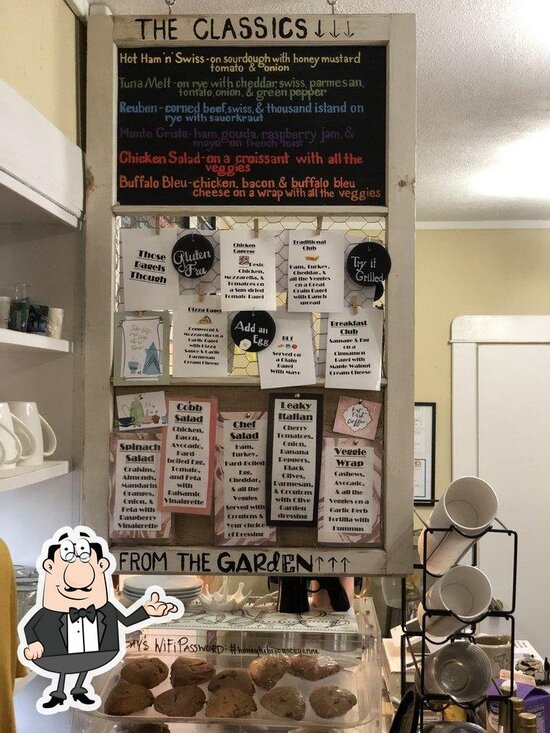 THE CLASSICS ↓↓↓
Hot Ham 'n' Swiss - on sourdough with honey mustard
tomato & onion
Tuna Melt - on rye with cheddar, swiss, parmesan,
tomato, onion, & green pepper
Reuben - corned beef, swiss, & thousand island on
rye with sauerkraut
Monte Cristo - ham, gouda, raspberry jam, &
mayo on french toast
Chicken Salad - on a croissant with all the
veggies
Buffalo Bleu - chicken, bacon & buffalo bleu
cheese on a wrap with all the veggies
Those
Bagels
Though
Gluten
Free
Chicken Caprese
Pesto
Chicken,
Mozzarella, &
Tomatoes on
a Sun-dried
Tomato Bagel
Traditional
Club
Ham, Turkey,
Cheddar, &
all the Veggies
on a Great
Grain Bagel
with Ranch
spread
Try it
Grilled
Pizza Bagel
Pepperoni &
Mozzarella on a
Garlic Bagel
with Pizza
Sauce & Garlic
Parmesan
Cream Cheese
Add an
Egg
BLT
Served on
a Plain
Bagel
With Mayo
Breakfast
Club
Sausage & Egg
on a
Cinnamon
Bagel with
Maple Walnut
Cream Cheese
Spinach
Salad
Craisins,
Almonds,
Mandarin
Oranges,
Onion, &
Feta with
Raspberry
Vinaigrette
Cobb
Salad
Chicken,
Bacon,
Avocado,
Hard-
boiled Egg,
Tomato,
and Feta
with
Balsamic
Vinaigrette
Chef
Salad
Ham,
Turkey,
Hard-Boiled
Egg,
Cheddar,
& all the
Veggies
Served with
Croutons &
Your choice
of Dressing
Leaky
Italian
Cherry
Tomatoes,
Onion,
Banana
Peppers,
Black
Olives,
Parmesan,
& Croutons
with Olive
Garden
dressing
But
First
Coffee
Veggie
Wrap
Cashews,
Avocado,
& all the
Veggies on a
Garlic Herb
Tortilla with
Hummus
FROM THE GARDEN ↑↑↑
WiFi PASSWORD: